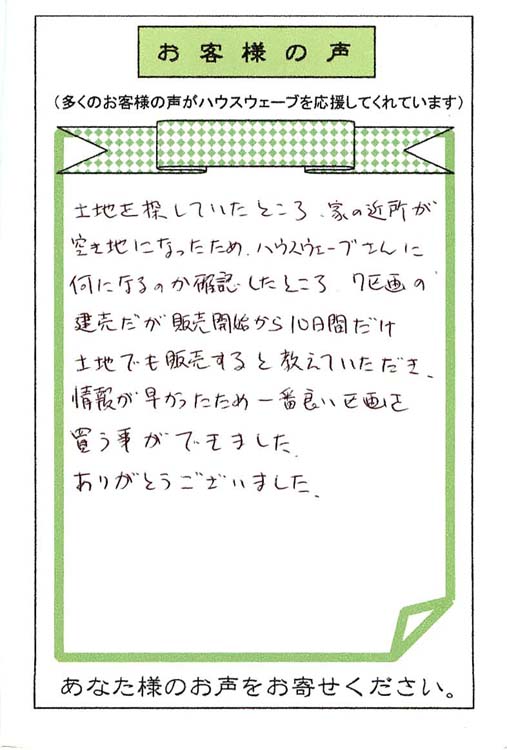 お客様の声
（多くのお客様の声がハウスウェーブを応援してくれています）
土地を探していたところ、家の近所が
空き地になったため、ハウスウェーブさんに
何になるのか確認したところ、7区画の
建売だが販売開始から10日間だけ
土地でも販売すると教えていただき、
情報が早かったため一番良い区画を
買う事ができました。
ありがとうございました。
あなた様のお声をお寄せください。